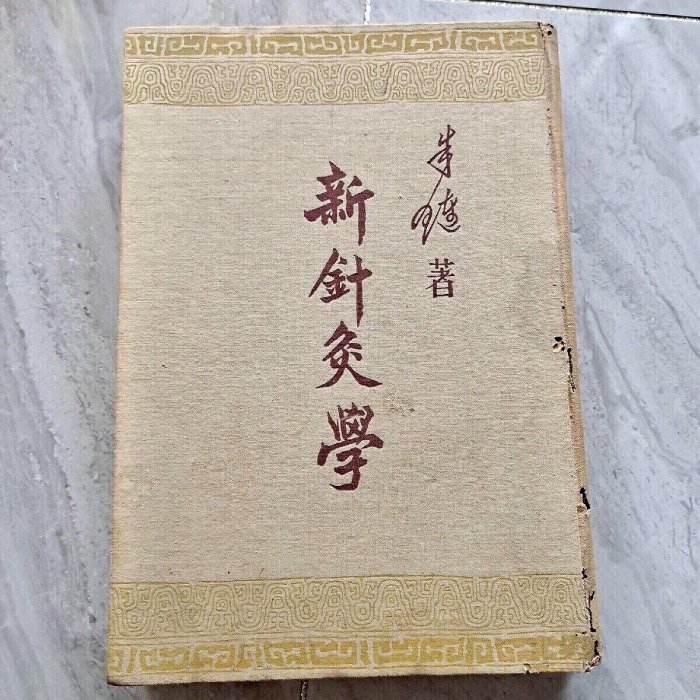 朱璉 著
新針灸學